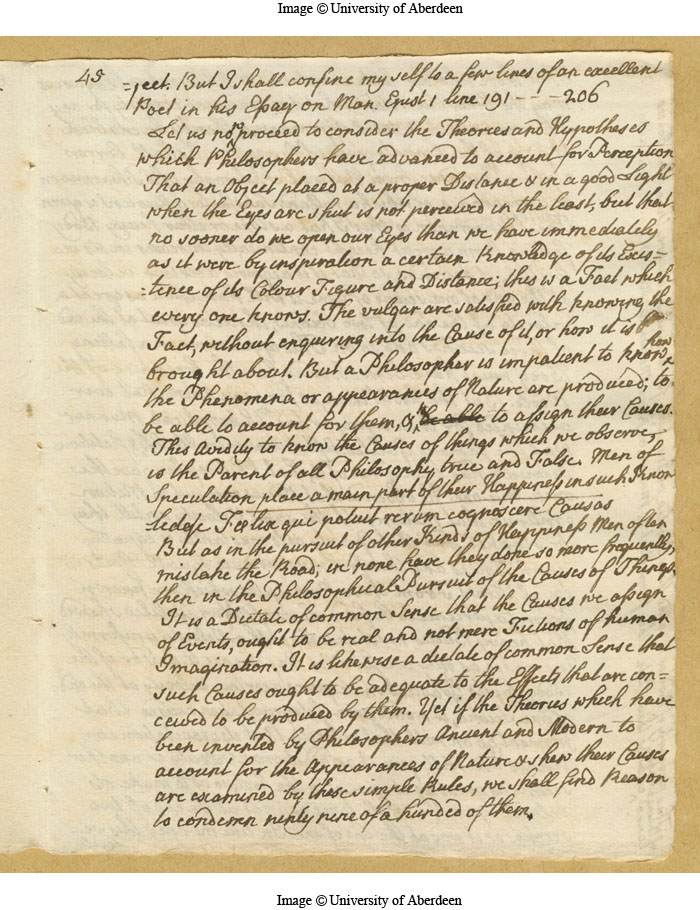 Image © University of Aberdeen
45
=ject. But I shall confine my self to a few lines of an excellent
Poet in his Essay on Man. Epist 1 line 191 - - - - 206
Let us now proceed to consider the Theories and Hypotheses
which Philosophers have advanced to account for Perception
That an Object placed at a proper Distance & in a good Light
when the Eyes are shut is not perceived in the least, but that
no sooner do we open our Eyes than we have immediately
as it were by inspiration a certain Knowledge of its Exis=
=tence of its Colour Figure and Distance; this is a Fact which
every one knows. The vulgar are satisfied with knowing the
Fact, without enquiring into the Cause of it, or how it is
brought about. But a Philosopher is impatient to know how
the Phenomena or appearances of Nature are produced; to
be able to account for them, & be able to assign their Causes.
This Avidity to know the Causes of things which we observe,
is the Parent of all Philosophy true and False. Men of
Speculation place a main part of their Happiness in such Know
=ledge Fælix qui potuit rerum cognoscere Causas
But as in the pursuit of other Kinds of Happiness Men often
mistake the Road; in none have they done so more frequently,
then in the Philosophical Pursuit of the Causes of Things.
It is a Dictate of common Sense that the Causes we assign
of Events, ought to be real and not mere Fictions of human
Imagination. It is likewise a dictate of common Sense that
such Causes ought to be adequate to the Effects that are con=
ceived to be produced by them. Yet if the Theories which have
been invented by Philosophers Ancient and Modern to
account for the Appearances of Nature & shew their Causes
are examined by these simple Rules, we shall find Reason
to condemn ninty nine of a hunded of them.
Image © University of Aberdeen